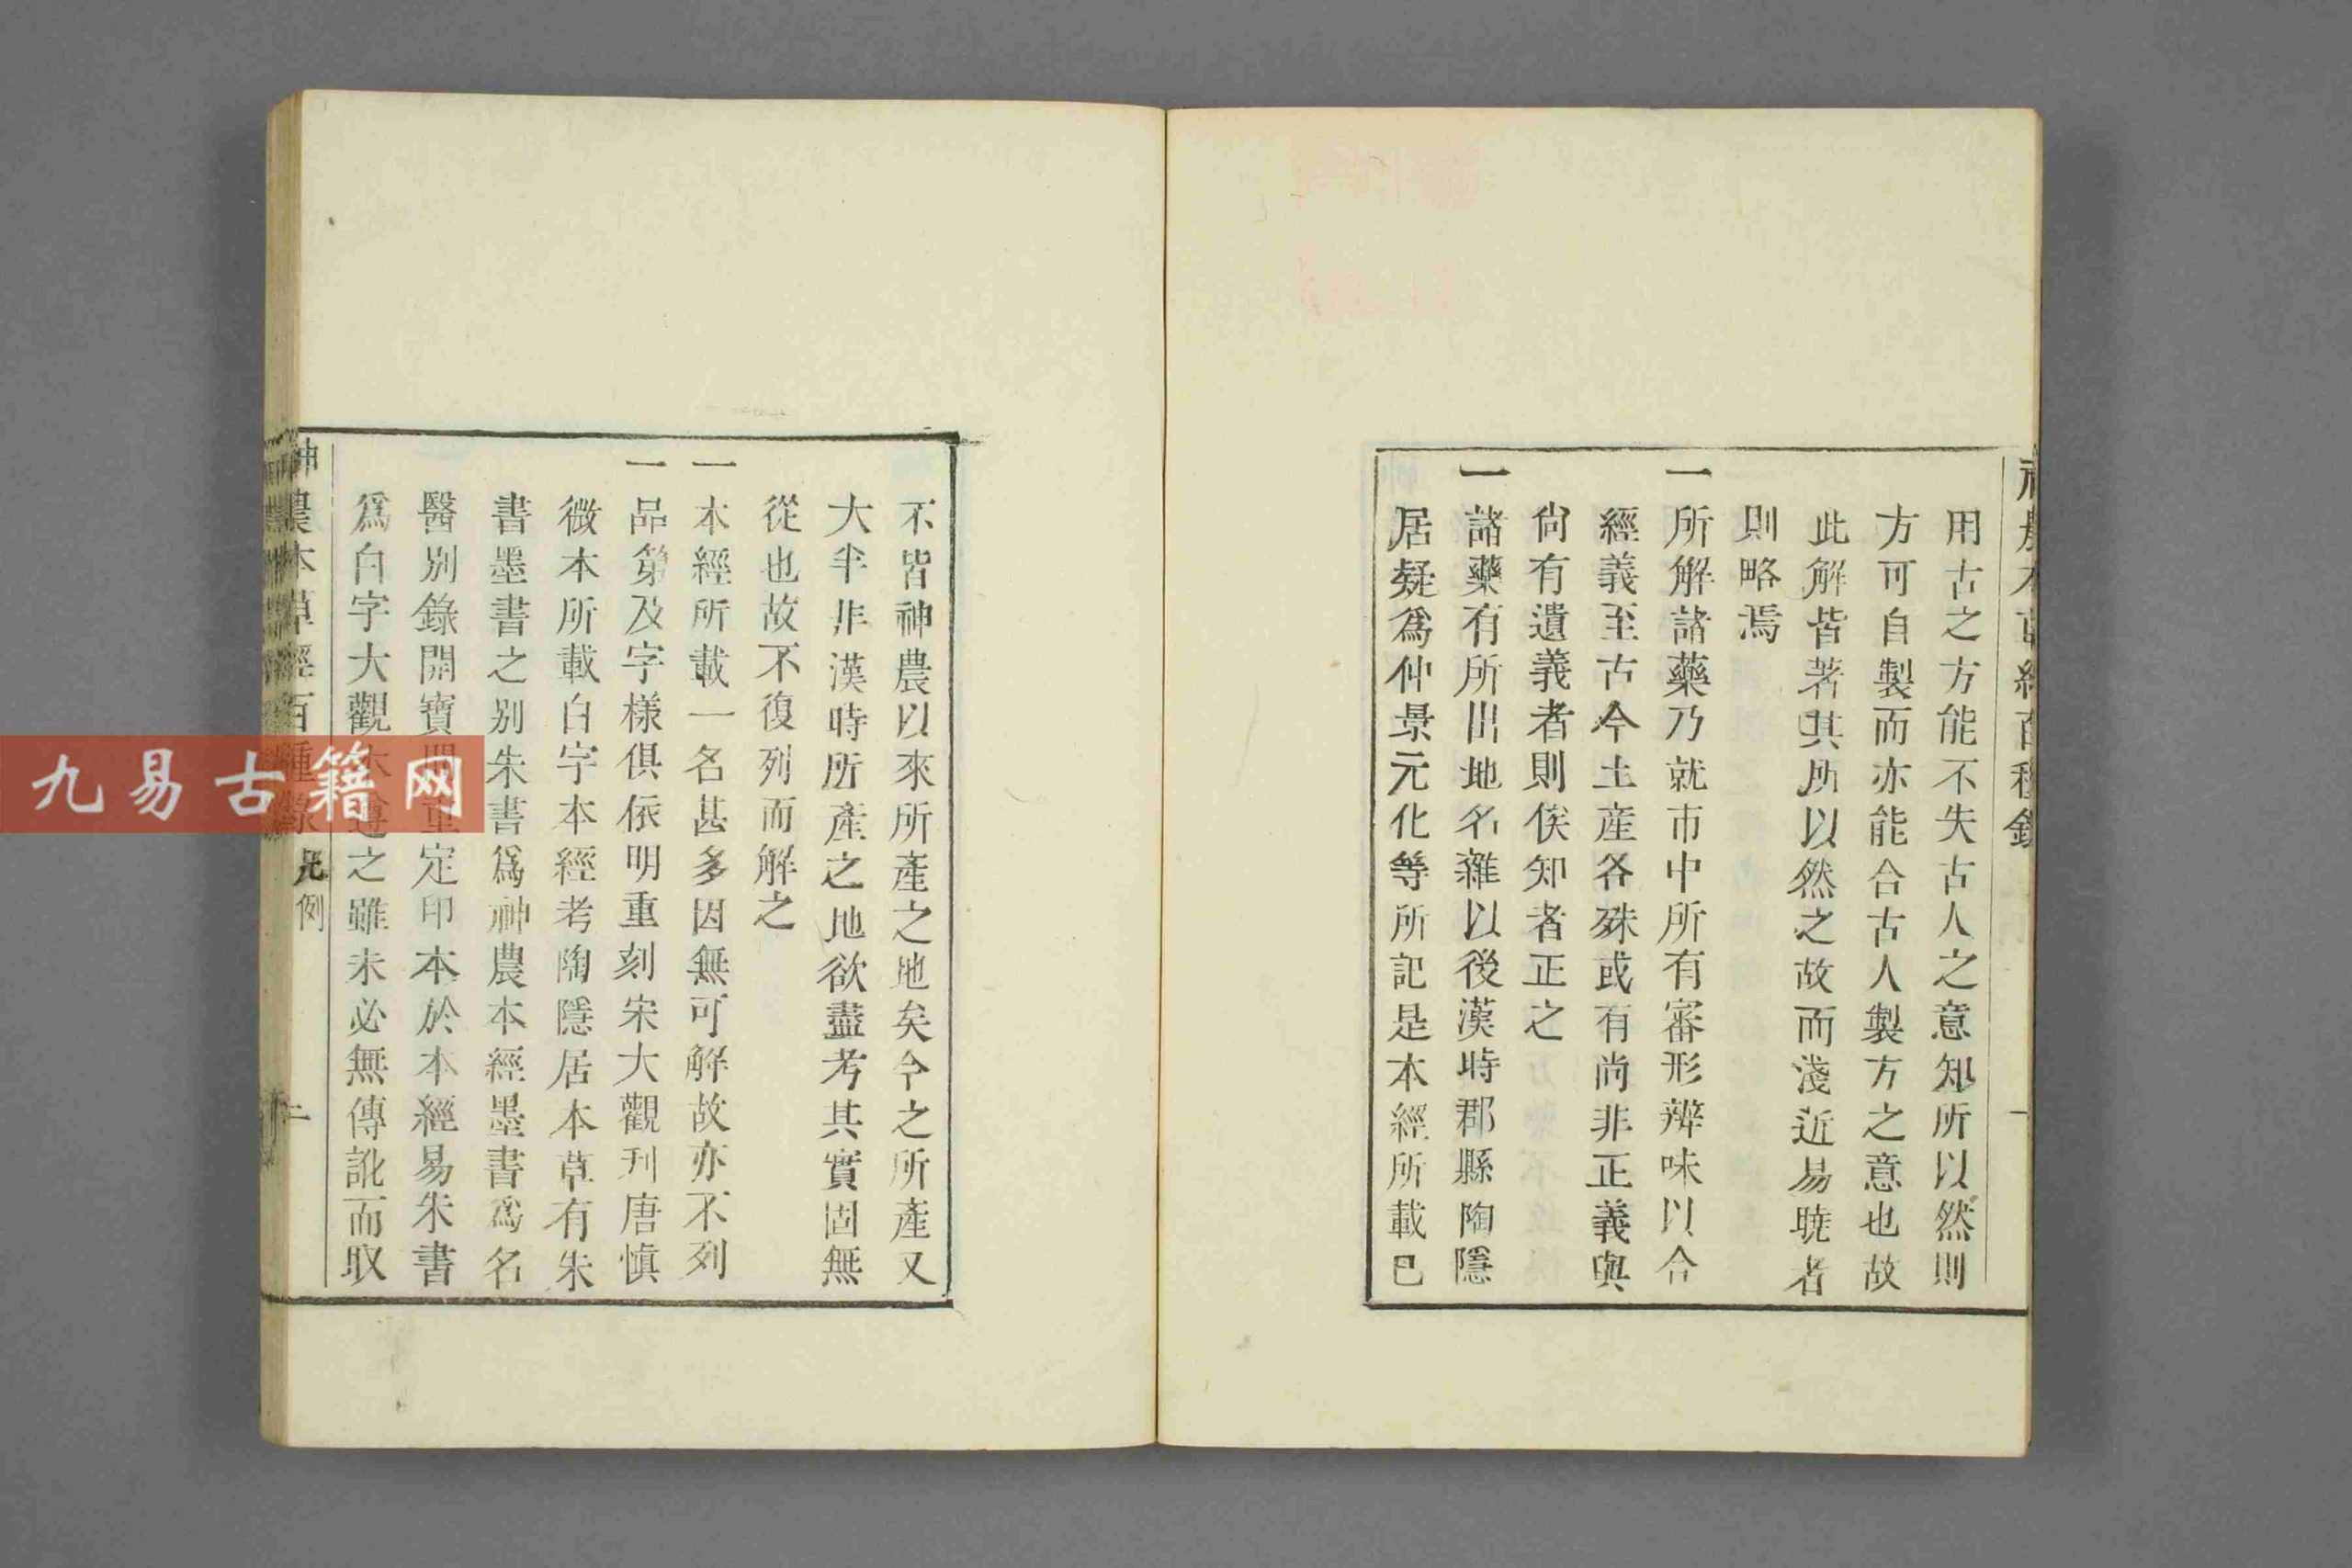 神農本草經百種錄
一
用古之方能不失古人之意知所以然則
方可自製而亦能合古人製方之意也故
此解皆著其所以然之故而淺近易曉者
則略焉
一所解諸藥乃就市中所有審形辨味以合
經義至古今土産各殊或有尚非正義與
尙有遺義者則俟知者正之
一諸藥有所出地名雜以後漢時郡縣陶隱
居疑爲仲景元化等所記是本經所載已
不皆神農以來所產之地矣今之所產又
大半非漢時所產之地欲盡考其實固無
從也故不復列而解之
一本經所載一名甚多因無可解故亦不列
一品第及字樣俱依明重刻宋大觀刊唐愼
微本所載白字本經考陶隱居本草有朱
書墨書之别朱書爲神農本經墨書爲名
醫别錄開寶間重定印本於本經易朱書
爲白字大觀本遵之雖未必無傳訛而取
神農本草經百種錄 凡例 二
九易古籍网